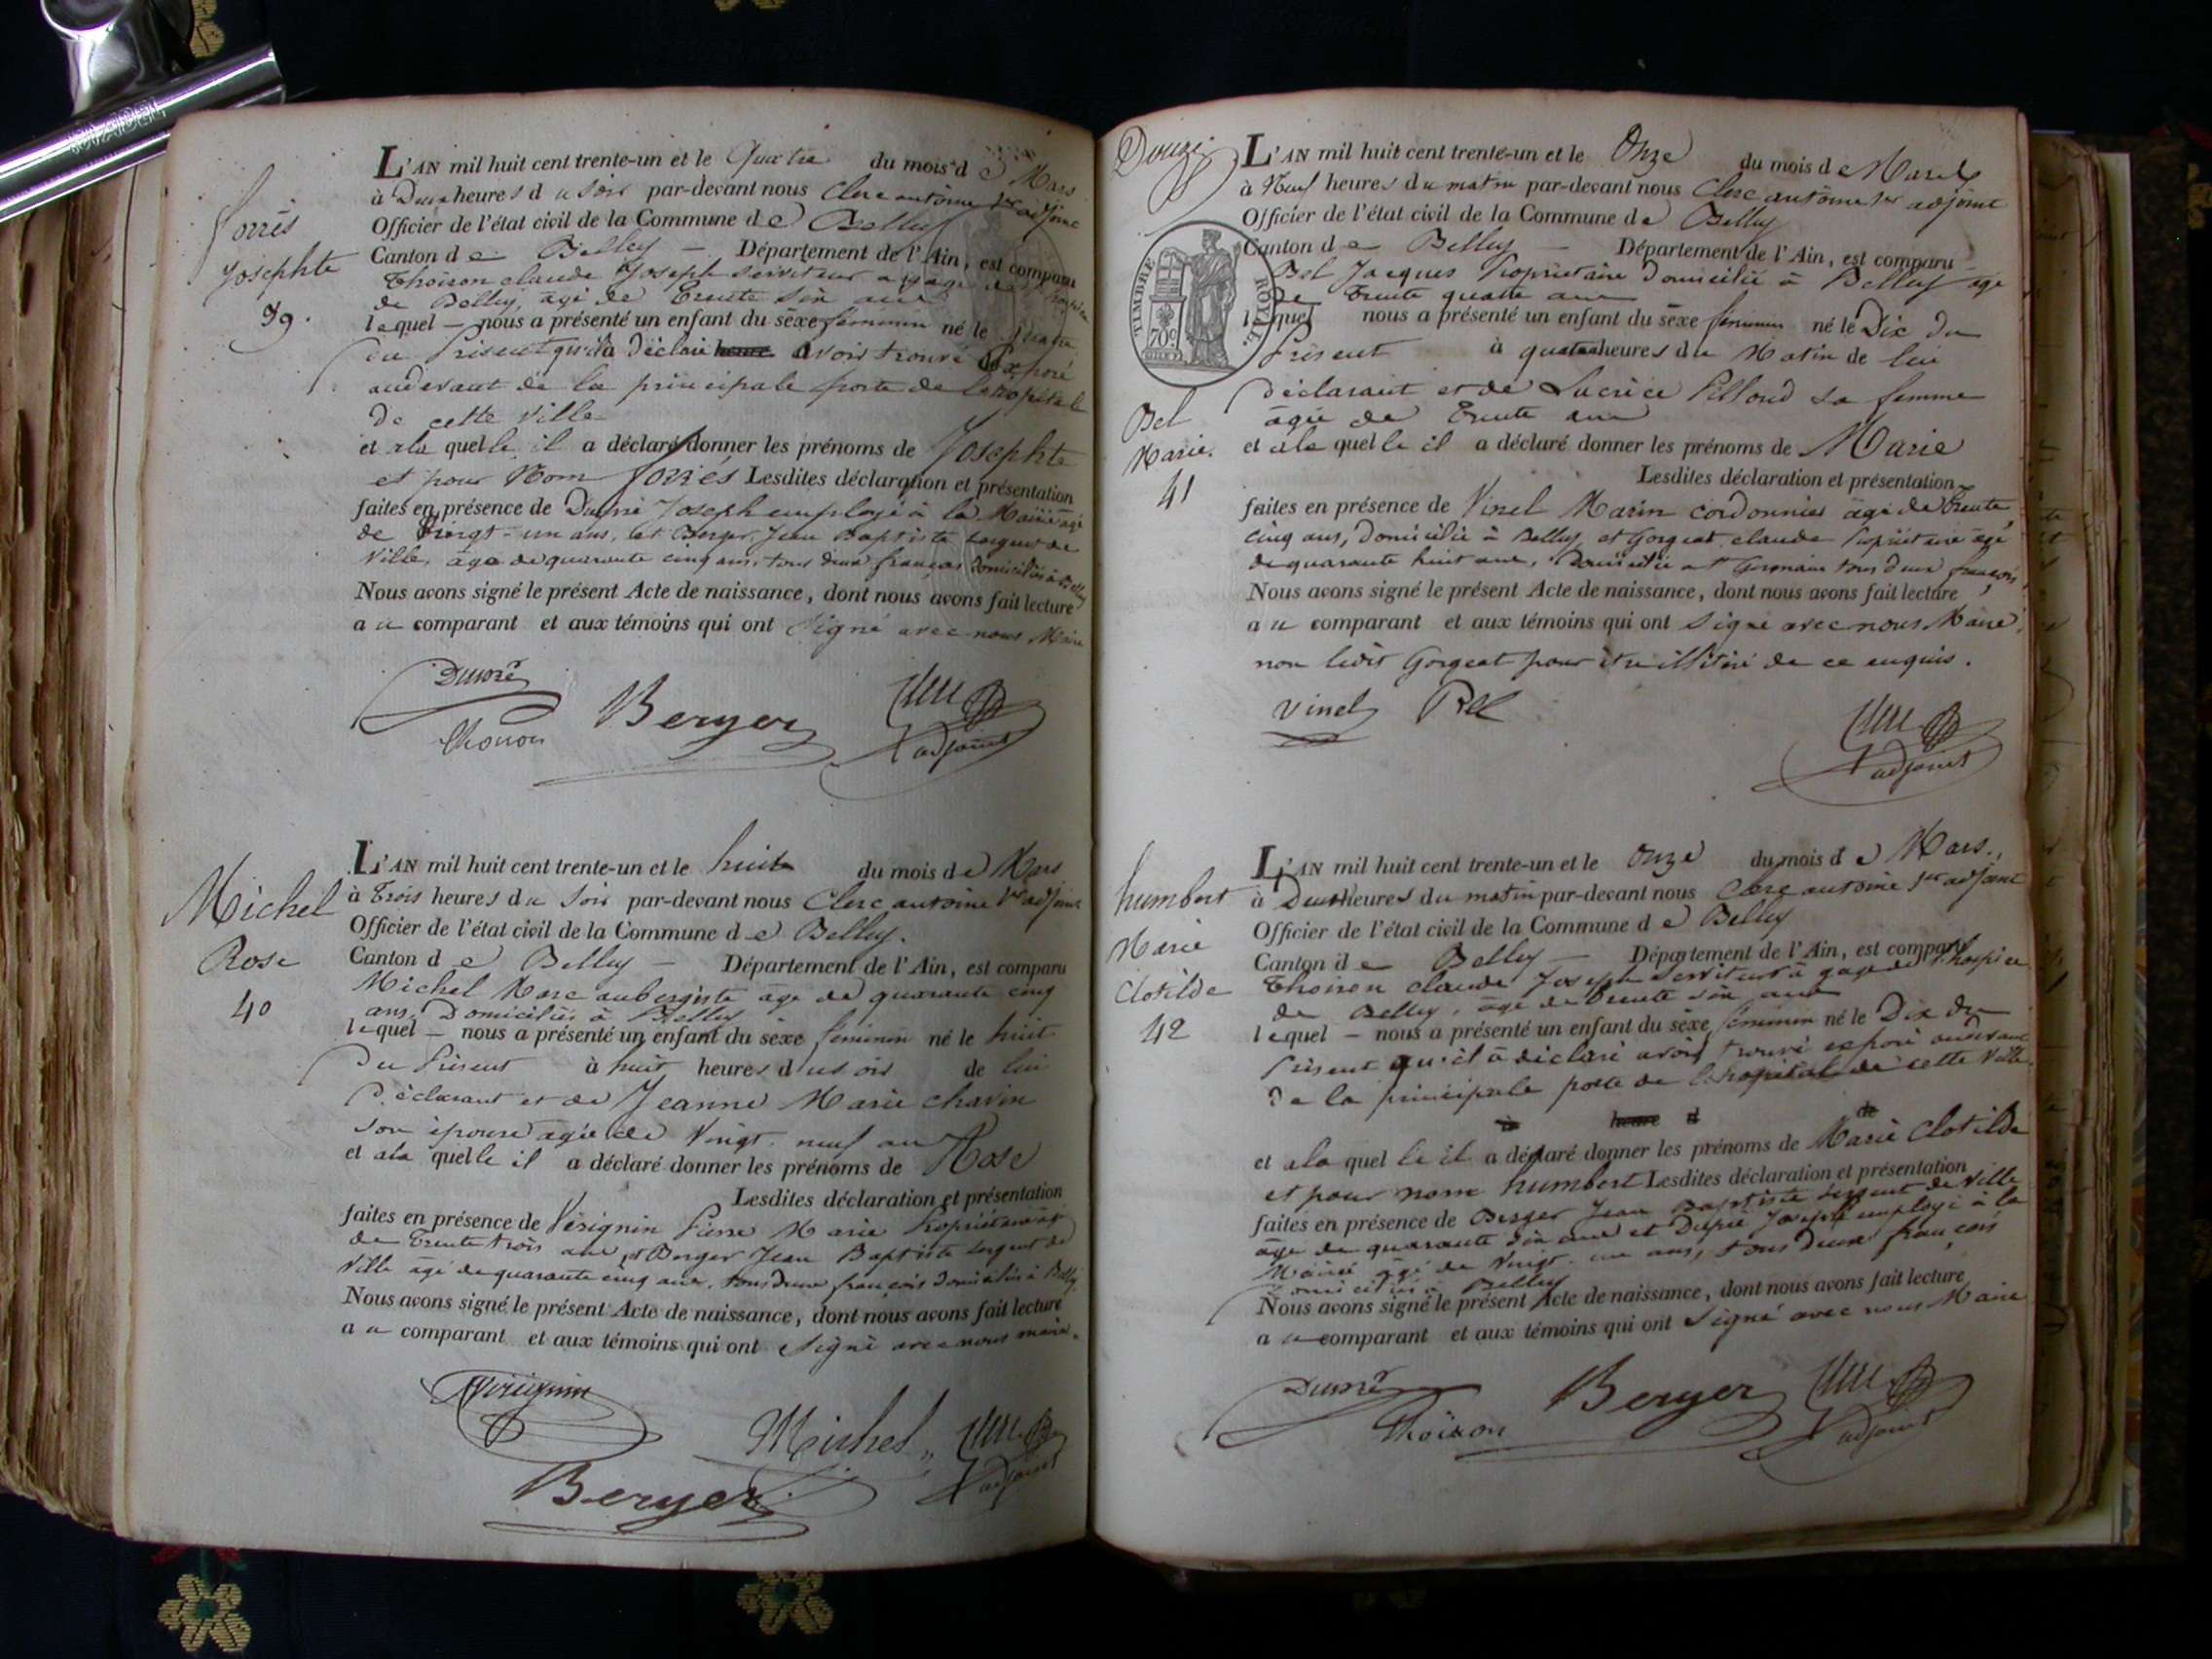 L'AN mil huit cent trente-un et le Quatre du mois de Mars
à Deux heures du soir par-devant nous Clerc antoine 1er adjoint
Officier de l'état civil de la Commune de Belley
Canton de Belley — Département de l'Ain, est comparu
Thoison claude Joseph serviteur a gage de l'hospice
de Belley, agé de Trente Six ans
lequel — nous a présenté un enfant du sèxe féminin né le
du Présent qu'il a déclaré avoir trouvé Exposé
audevant de la principale porte de l'hopital
de cette ville
et ala quelle il a déclaré donner les prénoms de Josephte
et pour Nom Forrés Lesdites déclaration et présentation
faites en présence de Dupré Joseph employé à la Mairie agé
de Vingt-un ans, et Berger Jean Baptiste sergent de
Ville, âgé de quarante cinq ans, tous deux français Domiciliés à Belley
Nous avons signé le présent Acte de naissance, dont nous avons fait lecture
au comparant et aux témoins qui ont Signé avec nous Maire
forrés
Josephte
39.
Dupré
Thoison
Berger
adjoint
L'AN mil huit cent trente-un et le huit du mois de Mars
à Trois heures du Soir par-devant nous Clerc antoine 1er adjoint
Officier de l'état civil de la Commune de Belley.
Canton de Belley — Département de l'Ain, est comparu
Michel Marc aubergiste âgé de quarante cinq
ans, Domicilié à Belley
lequel — nous a présenté un enfant du sèxe féminin né le huit
du Présent à huit heures du soir de lui
Déclarant et de Jeanne Marie chavin
son épouse agée de Vingt-neuf ans
et ala quelle il a déclaré donner les prénoms de Rose
Lesdites déclaration et présentation
faites en présence de Vérignin Pierre Marie Propriétaire agé
de Trente trois ans, et Berger Jean Baptiste sergent de
Ville agé de quarante cinq ans, tous deux françois domiciliés à Belley.
Nous avons signé le présent Acte de naissance, dont nous avons fait lecture
au comparant et aux témoins qui ont Signé avec nous maire.
Michel
Rose
40
Vérignin
Michel
Berger
adjoint
Douze
L'AN mil huit cent trente-un et le Onze du mois de Mars
à Neuf heures du matin par-devant nous Clerc antoine 1er adjoint
Officier de l'état civil de la Commune de Belley
Canton de Belley — Département de l'Ain, est comparu
Bel Jacques Propriétaire Domicilié à Belley agé
de Trente quatre ans
lequel nous a présenté un enfant du sèxe féminin né le Dix du
Présent à quatre heures du Matin de lui
Déclarant et de Lucrèce Pillond sa femme
âgée de Trente ans
et ala quelle il a déclaré donner les prénoms de Marie
Lesdites déclaration et présentation
faites en présence de Vinel Marin cordonnier âgé de Trente
cinq ans, Domicilié à Belley et Gorgeat claude Propriétaire âgé
de quarante huit ans, Domicilié a St Germain tous deux françois,
Nous avons signé le présent Acte de naissance, dont nous avons fait lecture
au comparant et aux témoins qui ont Signé avec nous Maire,
non ledit Gorgeat pour être illitéré de ce enquis.
TIMBRE ROYAL.
70c
Bel
Marie.
41
Vinel
Bel
adjoint
L'AN mil huit cent trente-un et le Onze du mois de Mars.
à Deux heures du matin par-devant nous Clerc antoine 1er adjoint
Officier de l'état civil de la Commune de Belley
Canton de Belley — Département de l'Ain, est comparu
Thoison claude Joseph Serviteur à gage de l'hospice
de Belley, âgé de Trente six ans
lequel — nous a présenté un enfant du sèxe féminin né le Dix du
Présent qu'il à déclaré avoir trouvé exposé audevant
De la principale porte de l'hopital de cette Ville.
à heure d de
et ala quelle il a déclaré donner les prénoms de Marie Clotilde
et pour nom humbert Lesdites déclaration et présentation
faites en présence de Berger Jean Baptiste Sergent de Ville
âgé de quarante Six ans et Dupré Joseph employé à la
Mairie agé de Vingt-un ans, tous deux françois
Domiciliés à Belley
Nous avons signé le présent Acte de naissance, dont nous avons fait lecture
au comparant et aux témoins qui ont Signé avec nous Maire
humbert
Marie
Clotilde
42
Dupré
Thoison
Berger
adjoint